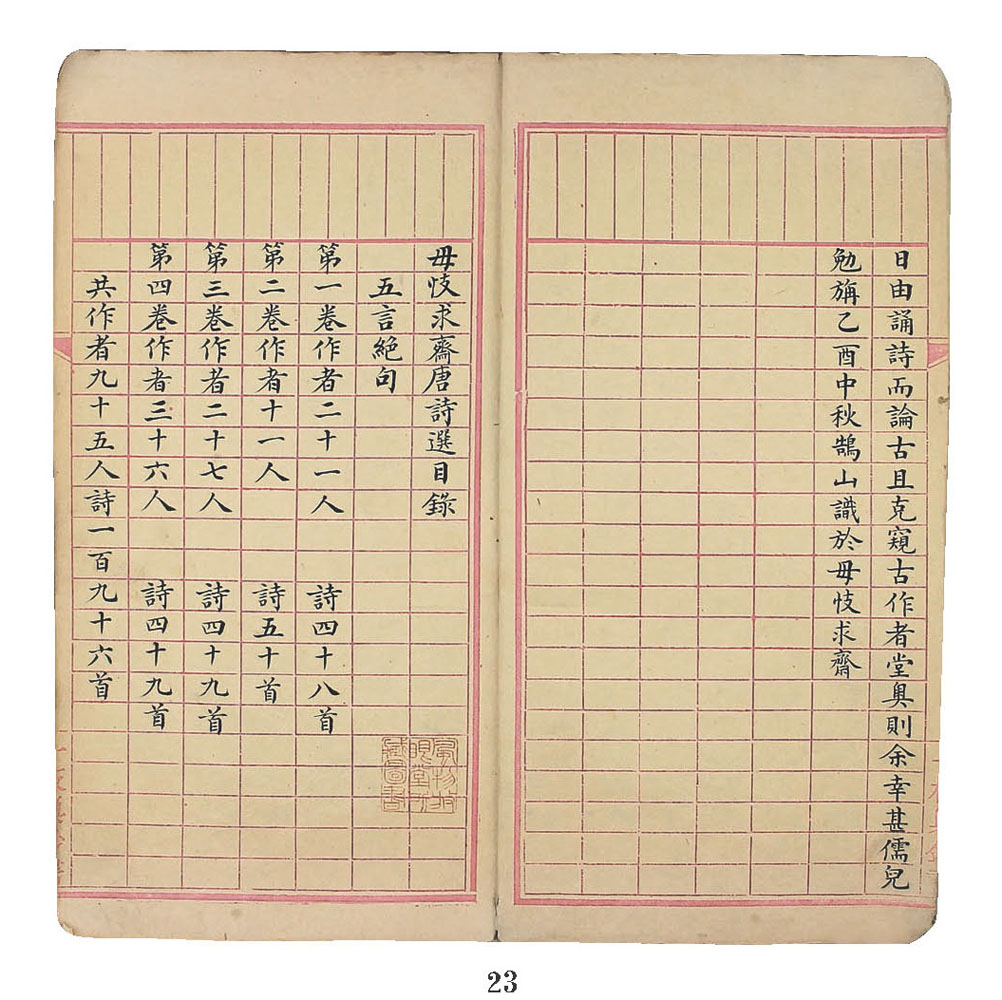 日由誦詩而論古且克窺古作者堂奧則余幸甚儒兒
勉旃乙酉中秋鵠山識於毋忮求齋
毋忮求齋唐詩選目錄
五言絕句
第一卷作者二十一人 詩四十八首
第二卷作者十一人 詩五十首
第三卷作者二十七人 詩四十九首
第四卷作者三十六人 詩四十九首
共作者九十五人詩一百九十六首
23